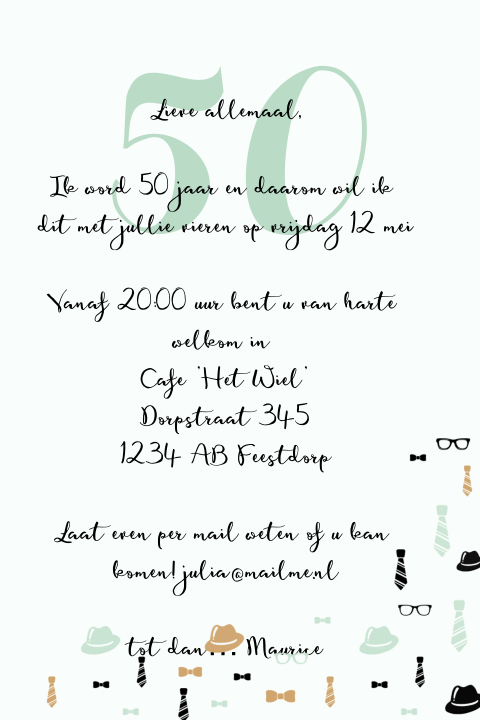 50
Lieve allemaal,
Ik word 50 jaar en daarom wil ik
dit met jullie vieren op vrijdag 12 mei
Vanaf 20:00 uur bent u van harte
welkom in
Cafe 'Het Wiel'
Dorpstraat 345
1234 AB Feestdorp
Laat even per mail weten of u kan
komen! julia@mailme.nl
tot dan... Maurice